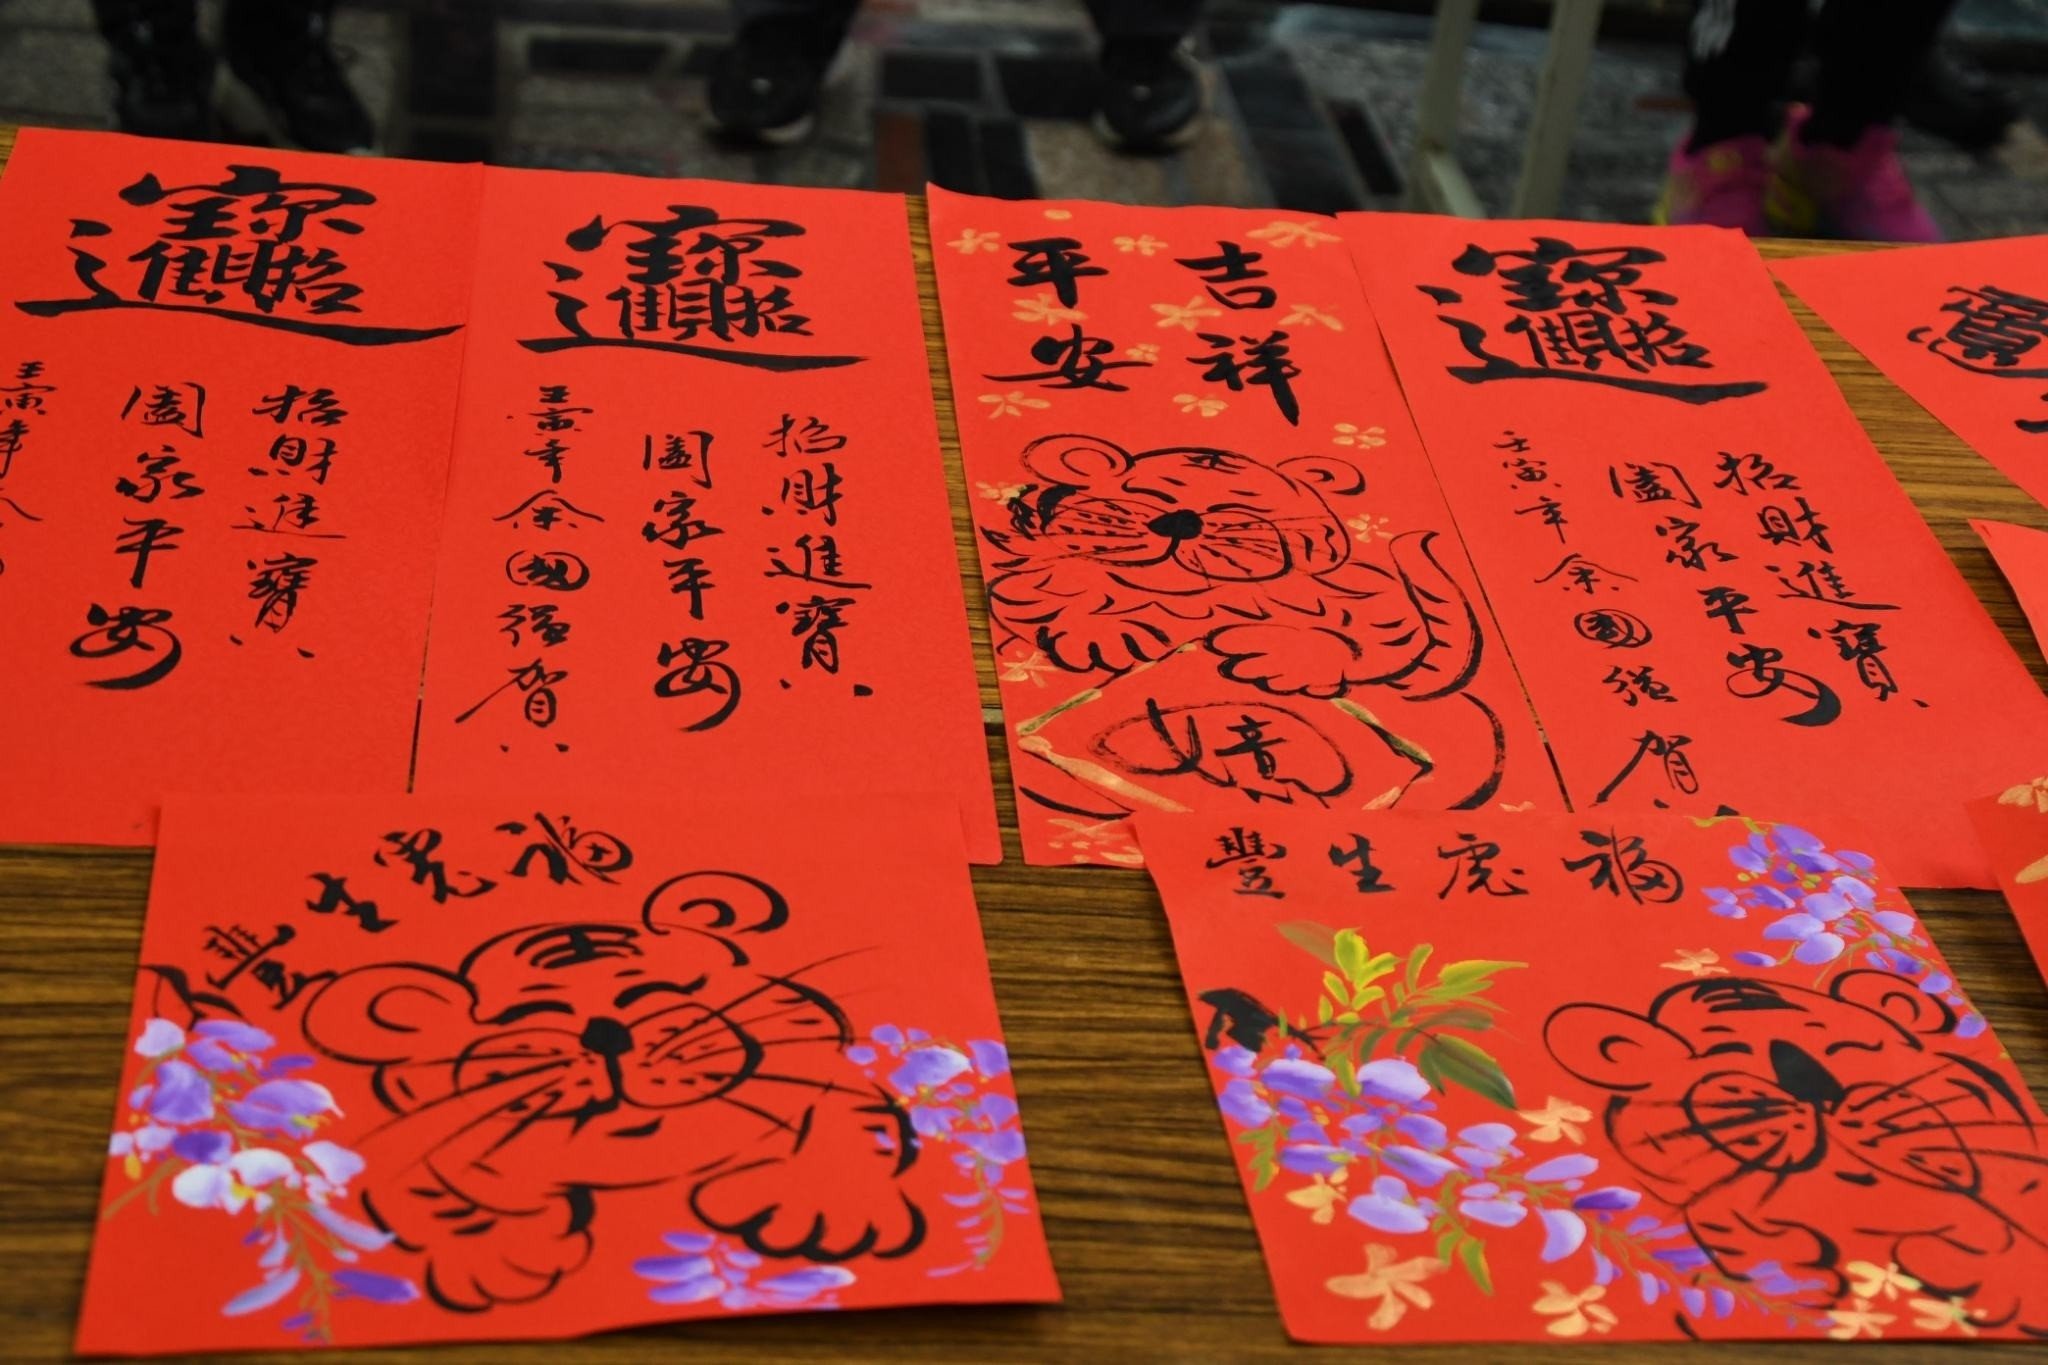 招財進寶
招財進寶
闔家平安
壬寅年余
招財進寶
招財進寶
闔家平安
壬寅年余國強賀
吉祥
平安
招財進寶
招財進寶
闔家平安
壬寅年余國強賀
福虎生豐
福虎生豐